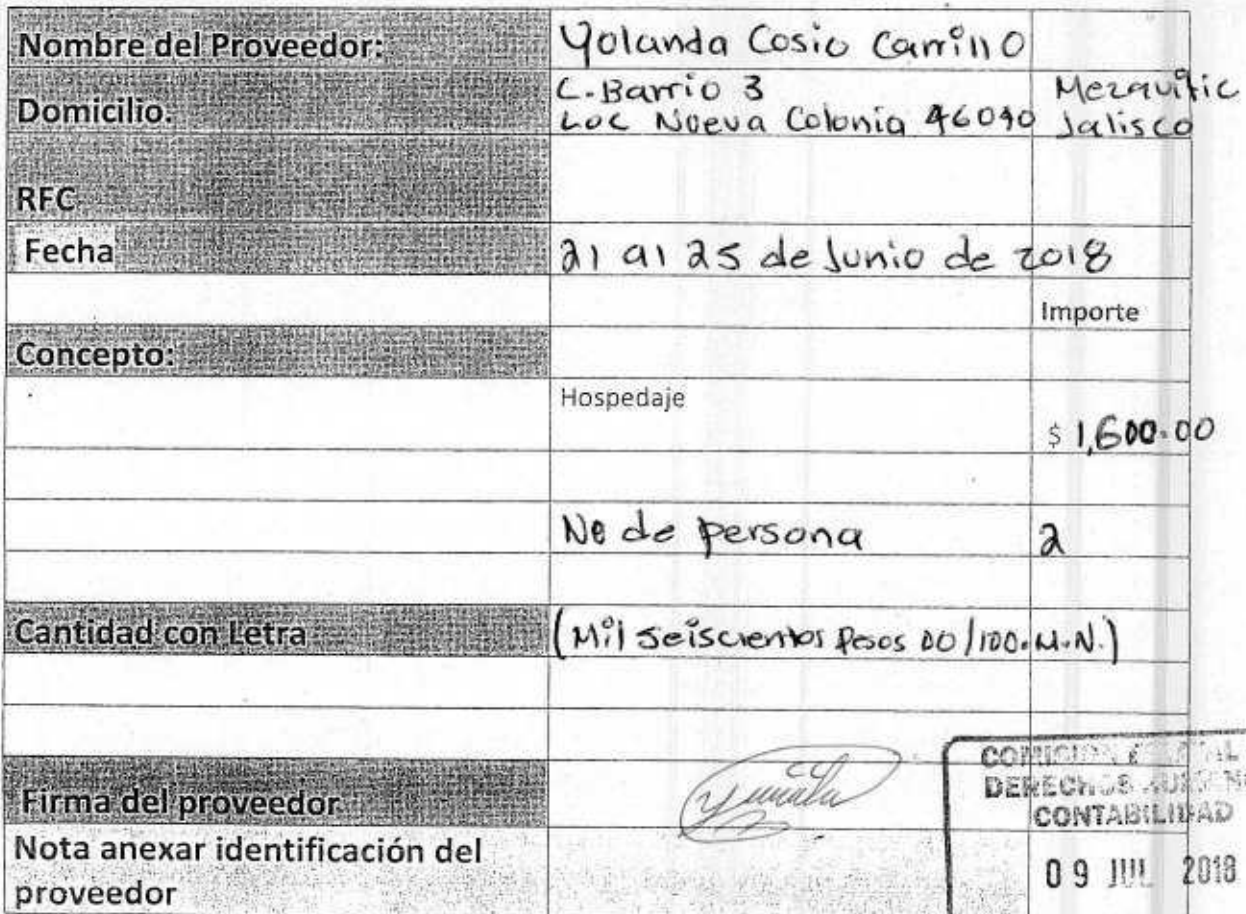 Nombre del Proveedor: Yolanda Cosio Carrillo
Domicilio: C. Barrio 3 Mezquitic
Loc Nueva Colonia 46040 Jalisco
RFC
Fecha 21 al 25 de Junio de 2018
Importe
Concepto:
Hospedaje
$ 1,600.00
No de persona 2
Cantidad con Letra (Mil seiscientos Pesos 00/100.M.N.)
Firma del proveedor
Nota anexar identificación del
proveedor
DERECHOS
CONTABILIDAD
09 JUL 2018